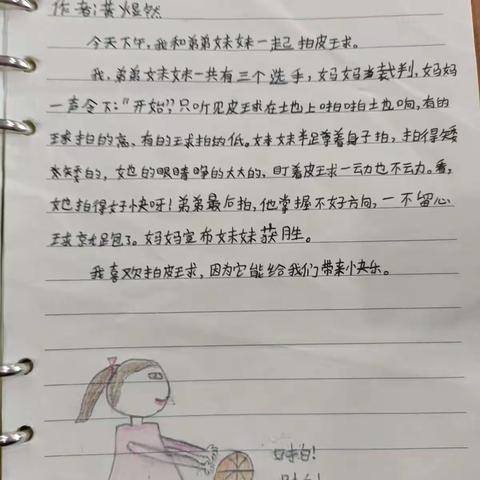 作者:黄煜然
今天下午,我和弟弟妹妹一起拍皮球。
我,弟弟妹妹一共有三个选手,妈妈当裁判,妈妈
一声令下:“开始”,只听见皮球在地上啪啪地响,有的
球拍的高、有的球拍的低。妹妹半蹲着身子拍,拍得矮
矮矮的,她的眼睛睁的大大的,盯着皮球一动也不动。看,
她拍得好快呀!弟弟最后拍,他掌握不好方向,一不留心
球就跑了。妈妈宣布妹妹获胜。
我喜欢拍皮球,因为它能给我们带来快乐。
啪!